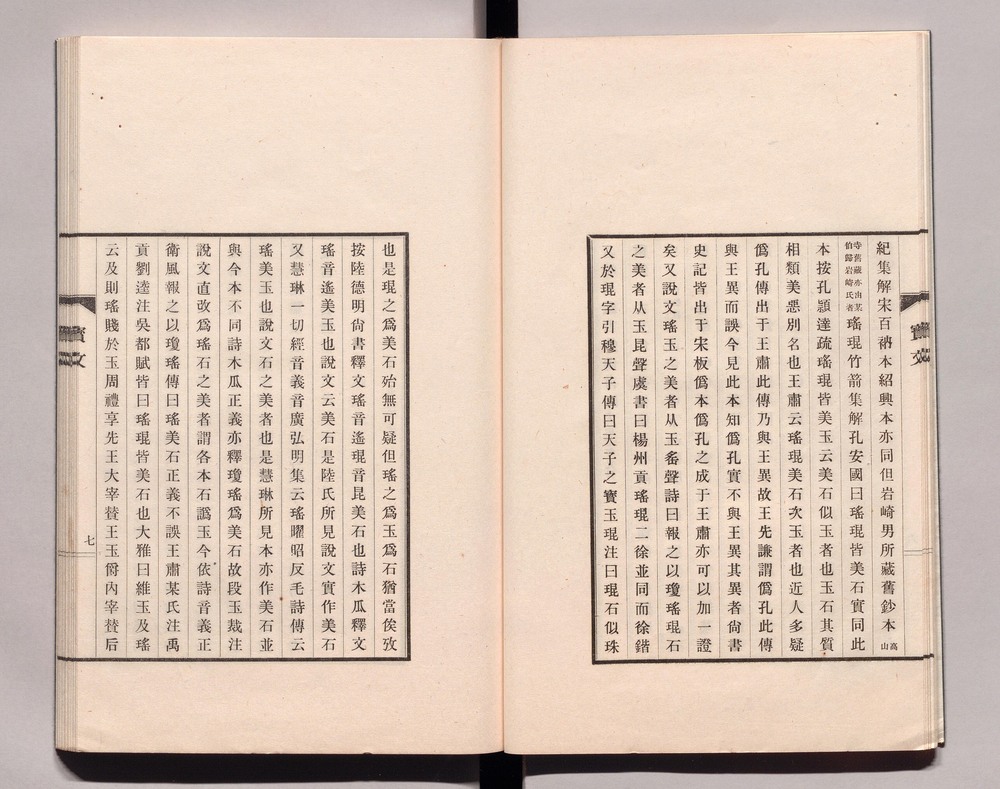 紀集解宋百衲本紹興本亦同但岩崎男所藏舊鈔本高山
寺舊藏亦由某伯歸岩崎氏者瑤琨竹箭集解孔安國曰瑤琨皆美石實同此
本按孔穎達疏瑤琨皆美玉云美石似玉者也玉石其質
相類美惡別名也王肅云瑤琨美石次玉者也近人多疑
僞孔傳出于王肅此傳乃與王異故王先謙謂僞孔此傳
與王異而誤今見此本知僞孔實不與王異其異者尙書
史記皆出于宋板僞本僞孔之成于王肅亦可以加一證
矣又說文瑤玉之美者从玉䍃聲詩曰報之以瓊瑤琨石
之美者从玉昆聲虞書曰楊州貢瑤琨二徐並同而徐鍇
又於琨字引穆天子傳曰天子之寶玉琨注曰琨石似珠
也是琨之爲美石殆無可疑但瑤之爲玉爲石猶當俟攷
按陸德明尙書釋文瑤音遙琨音昆美石也詩木瓜釋文
瑤音遙美玉也說文云美石是陸氏所見說文實作美石
又慧琳一切經音義音廣弘明集云瑤曜昭反毛詩傳云
瑤美玉也說文石之美者也是慧琳所見本亦作美石並
與今本不同詩木瓜正義亦釋瓊瑤爲美石故段玉裁注
說文直改爲瑤石之美者謂各本石譌玉今依詩音義正
衛風報之以瓊瑤傳曰瑤美石正義不誤王肅某氏注禹
貢劉逵注吳都賦皆曰瑤琨皆美石也大雅曰維玉及瑤
云及則瑤賤於玉周禮享先王大宰贊王玉爵內宰贊后
七